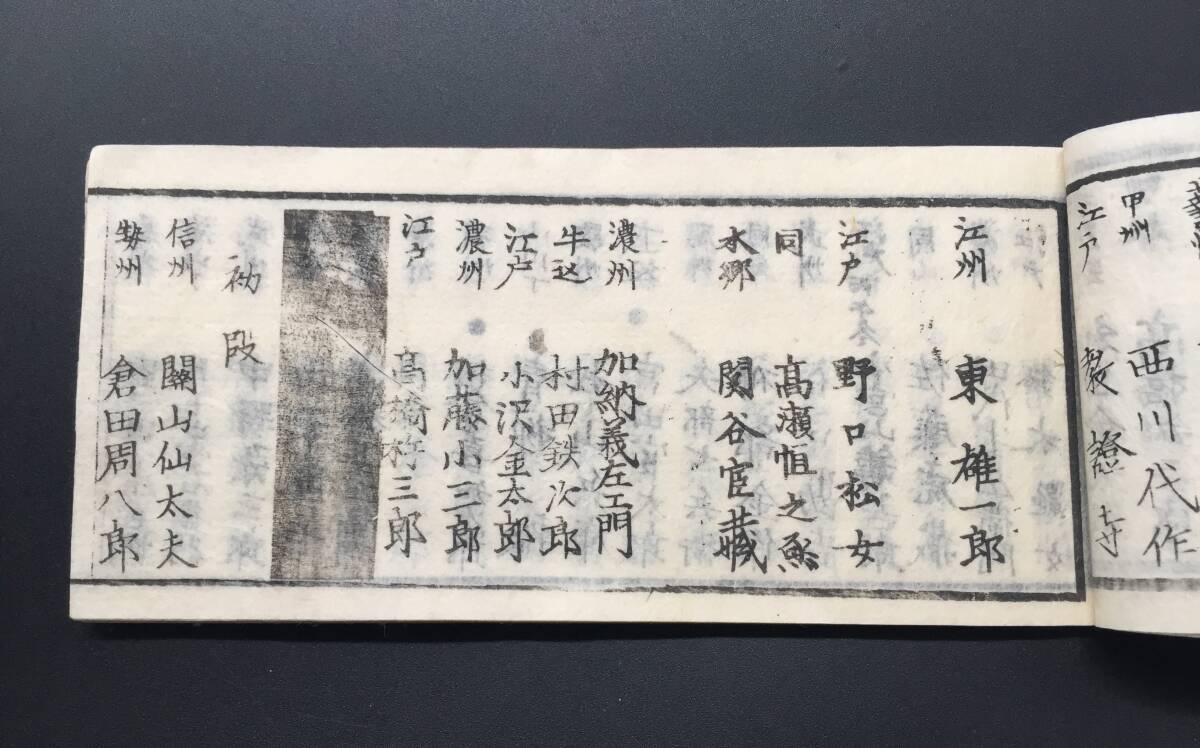 甲州 西川代作
江戸
江州 東雄一郎
江戸 野口松女
同 髙瀬恒之
本郷 関谷官藏
濃州 加納義左エ門
牛込 村田鉄次郎
江戸 小沢金太郎
濃州 加藤小三郎
江戸 髙 三郎
初段
信州 關山仙太夫
州 倉田周八郎